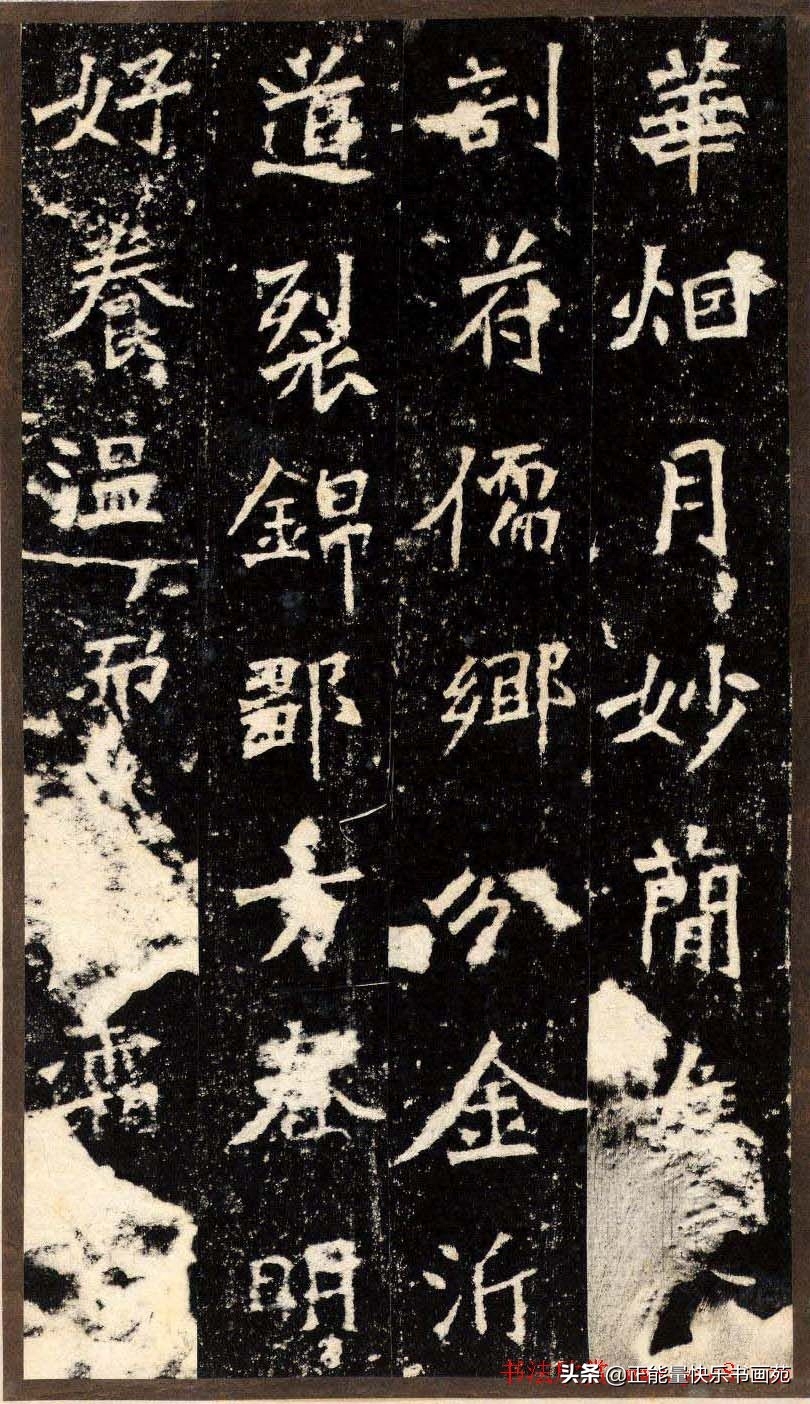 華烟月妙簡
剖符儒鄉分金沂
道裂錦鄒方春明
好養溫
头条 @正能量快乐书画苑